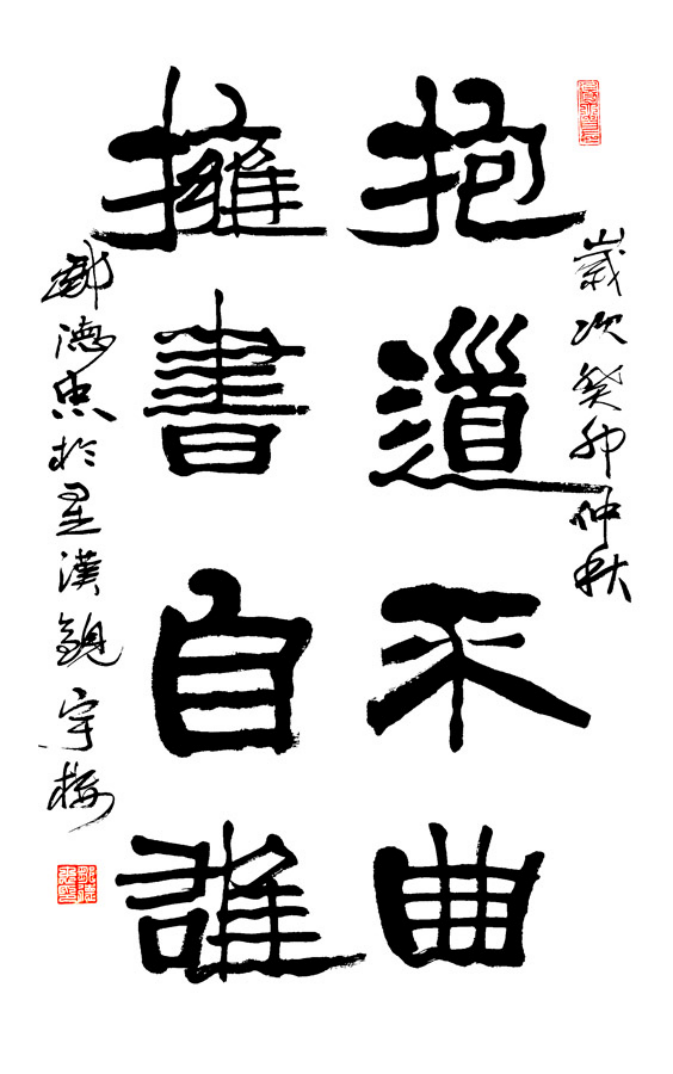 歲次癸卯仲秋
抱道不曲
擁書自雄
鄒德忠於星漢觀宇樓